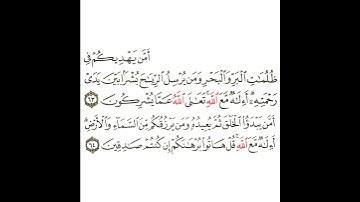 أَمَّن يَهْدِيكُمْ فِى
ظُلُمَـٰتِ ٱلْبَرِّ وَٱلْبَحْرِ وَمَن يُرْسِلُ ٱلرِّيَـٰحَ بُشْرًۢا بَيْنَ يَدَىْ
رَحْمَتِهِۦٓ ۗ أَءِلَـٰهٌ مَّعَ ٱللَّهِ ۚ تَعَـٰلَى ٱللَّهُ عَمَّا يُشْرِكُونَ ٦٣
أَمَّن يَبْدَؤُا۟ ٱلْخَلْقَ ثُمَّ يُعِيدُهُۥ وَمَن يَرْزُقُكُم مِّنَ ٱلسَّمَآءِ وَٱلْأَرْضِ ۗ
أَءِلَـٰهٌ مَّعَ ٱللَّهِ ۚ قُلْ هَاتُوا۟ بُرْهَـٰنَكُمْ إِن كُنتُمْ صَـٰدِقِينَ ٦٤